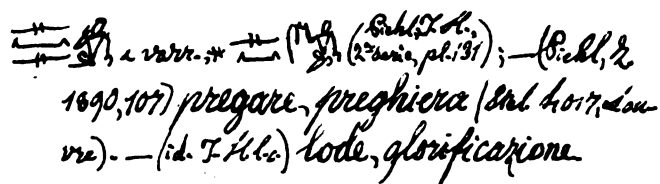 e varr., * (Piehl, I. H.,
2ª serie, pl. 131); — (Piehl, Z.
1890, 107) pregare, preghiera (Stel. Lou-
vre). — (id. I. H. l. c.) lode, glorificazione